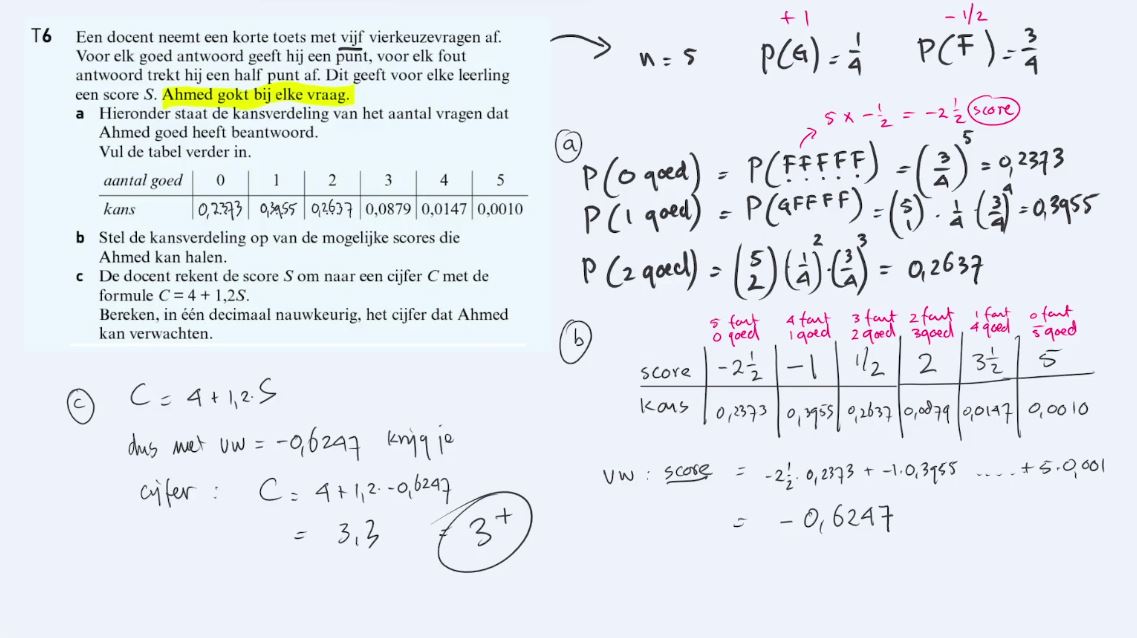 T6 Een docent neemt een korte toets met vijf vierkeuzevragen af.
Voor elk goed antwoord geeft hij een punt, voor elk fout
antwoord trekt hij een half punt af. Dit geeft voor elke leerling
een score S. Ahmed gokt bij elke vraag.
a Hieronder staat de kansverdeling van het aantal vragen dat
Ahmed goed heeft beantwoord.
Vul de tabel verder in.
aantal goed 0 1 2 3 4 5
kans 0,2373 0,3955 0,2637 0,0879 0,0147 0,0010
b Stel de kansverdeling op van de mogelijke scores die
Ahmed kan halen.
c De docent rekent de score S om naar een cijfer C met de
formule C = 4 + 1,2S.
Bereken, in één decimaal nauwkeurig, het cijfer dat Ahmed
kan verwachten.
+1 -1/2
n = 5 P(G) = 1/4 P(F) = 3/4
5 x -1/2 = -2 1/2 score
a
P(0 goed) = P(FFFFF) = (3/4)^5 = 0,2373
P(1 goed) = P(GFFFF) = (5 1) · 1/4 (3/4)^4 = 0,3955
P(2 goed) = (5 2)(1/4)^2 · (3/4)^3 = 0,2637
b
5 fout 4 fout 3 fout 2 fout 1 fout 0 fout
0 goed 1 goed 2 goed 3 goed 4 goed 5 goed
score -2 1/2 -1 1/2 2 3 1/2 5
kans 0,2373 0,3955 0,2637 0,0879 0,0147 0,0010
VW : score = -2 1/2 · 0,2373 + -1 · 0,3955 ..... + 5 · 0,001
= -0,6247
c C = 4 + 1,2 · S
dus met VW = -0,6247 krijg je
cijfer : C = 4 + 1,2 · -0,6247
= 3,3 = 3+